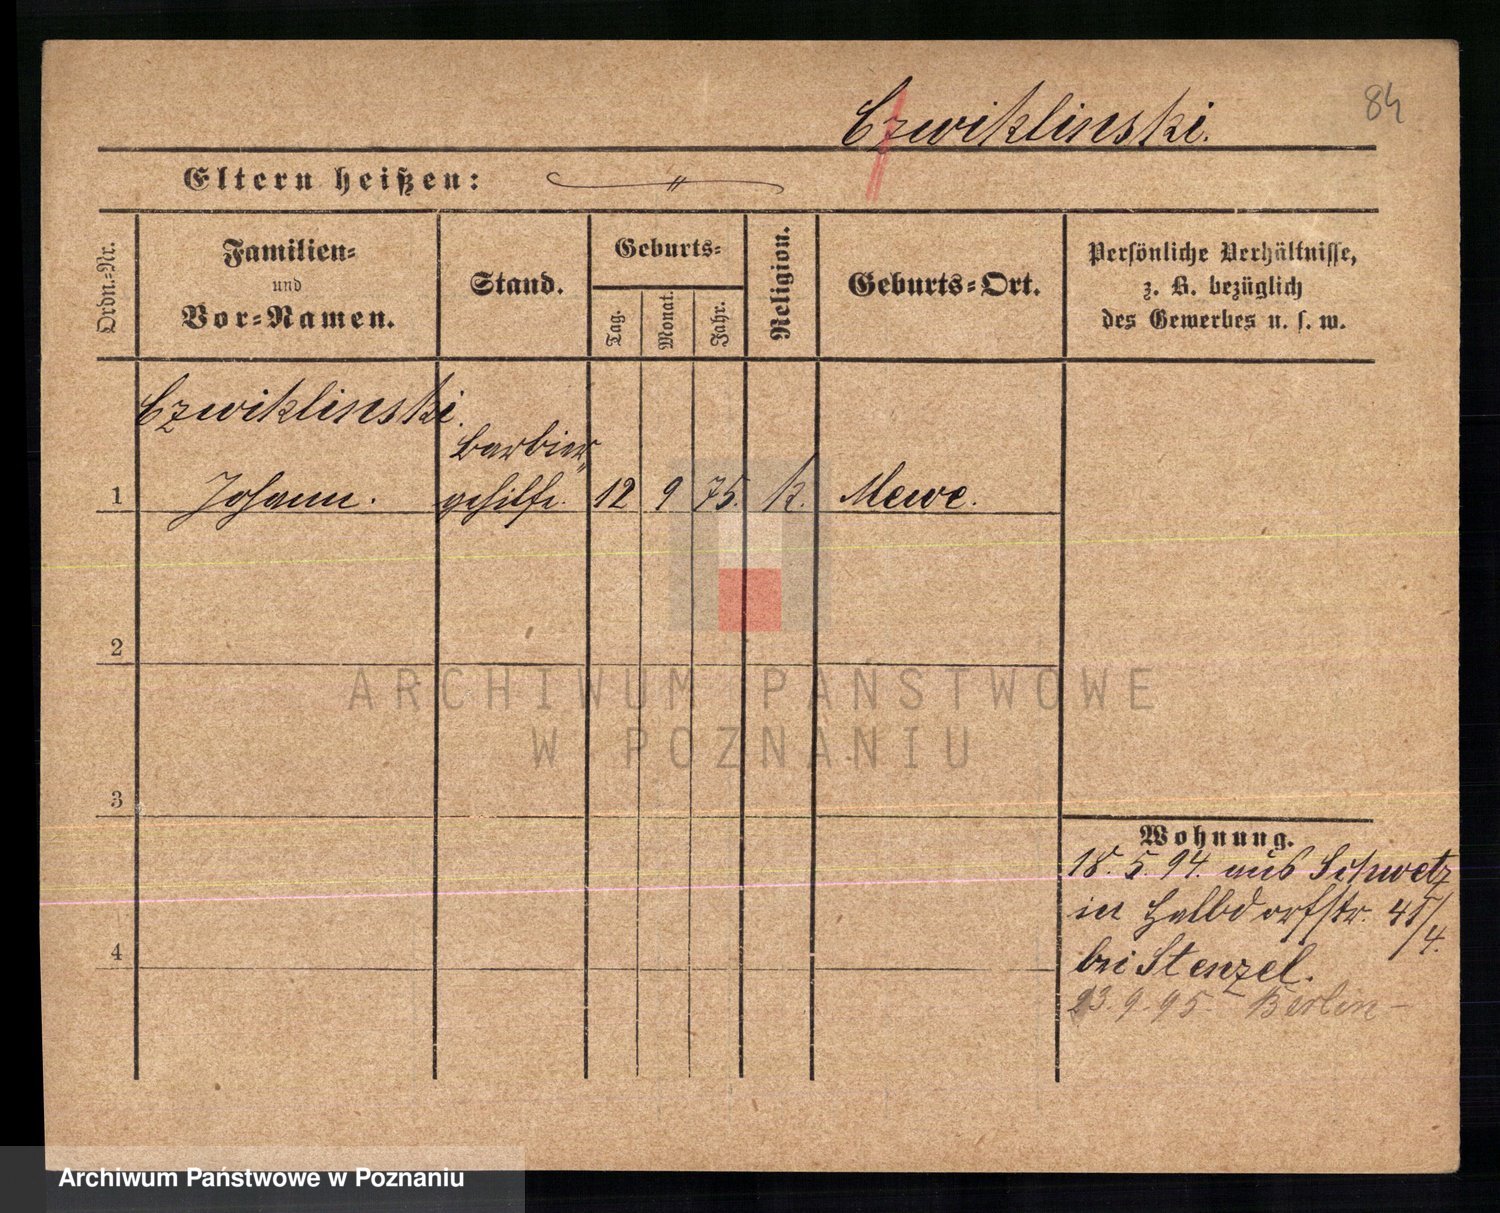 84
Czwiklinski.
Eltern heißen:
Ordn.=Nr.
Familien=
und
Vor=Namen.
Stand.
Geburts=
Tag.
Monat.
Jahr.
Religion.
Geburts=Ort.
Persönliche Verhältnisse,
z. B. bezüglich
des Gewerbes u. s. w.
Czwiklinski.
Barbier„
1 Johann. gehilfe. 12 9 75. k. Mewe.
2
ARCHIWUM PAŃSTWOWE
W POZNANIU
3
Wohnung.
18. 5. 94. aus Schwetz
in Halbdorfstr. 41/4.
4
bei Stenzel.
23. 9. 95. Berlin
Archiwum Państwowe w Poznaniu